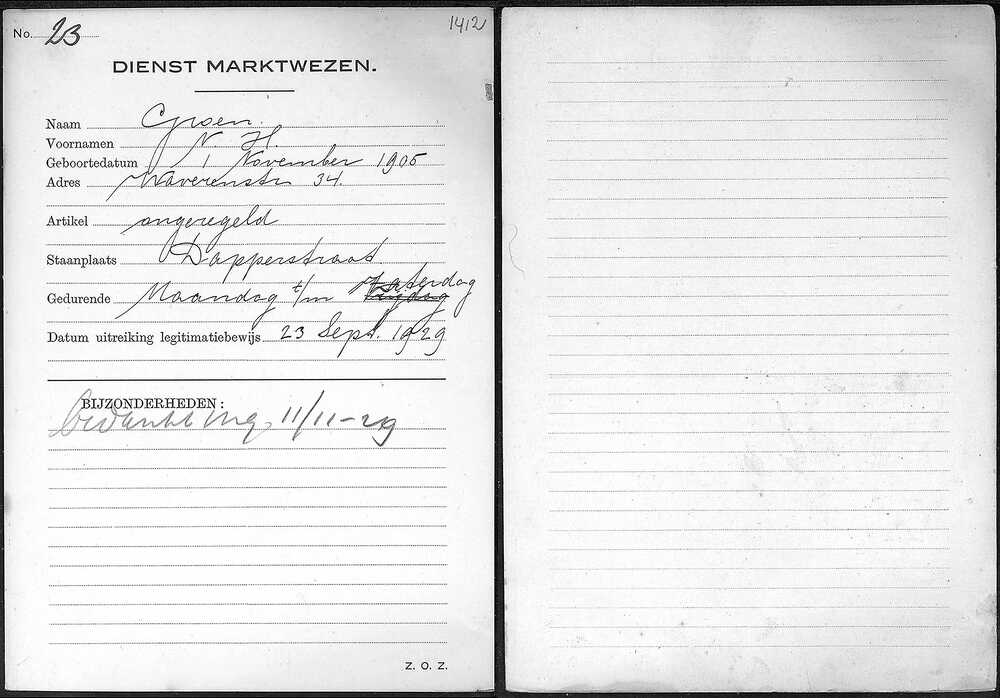 No. 23
1412
DIENST MARKTWEZEN.
Naam Groen.
Voornamen N. H.
Geboortedatum 1 November 1905
Adres Waverenstr 34.
Artikel ongeregeld
Staanplaats Dapperstraat
Gedurende Maandag t/m Vrijdag Zaterdag
Datum uitreiking legitimatiebewijs 23 Sept. 1929
BIJZONDERHEDEN:
Bedankt ing. 11/11-29
Z. O. Z.